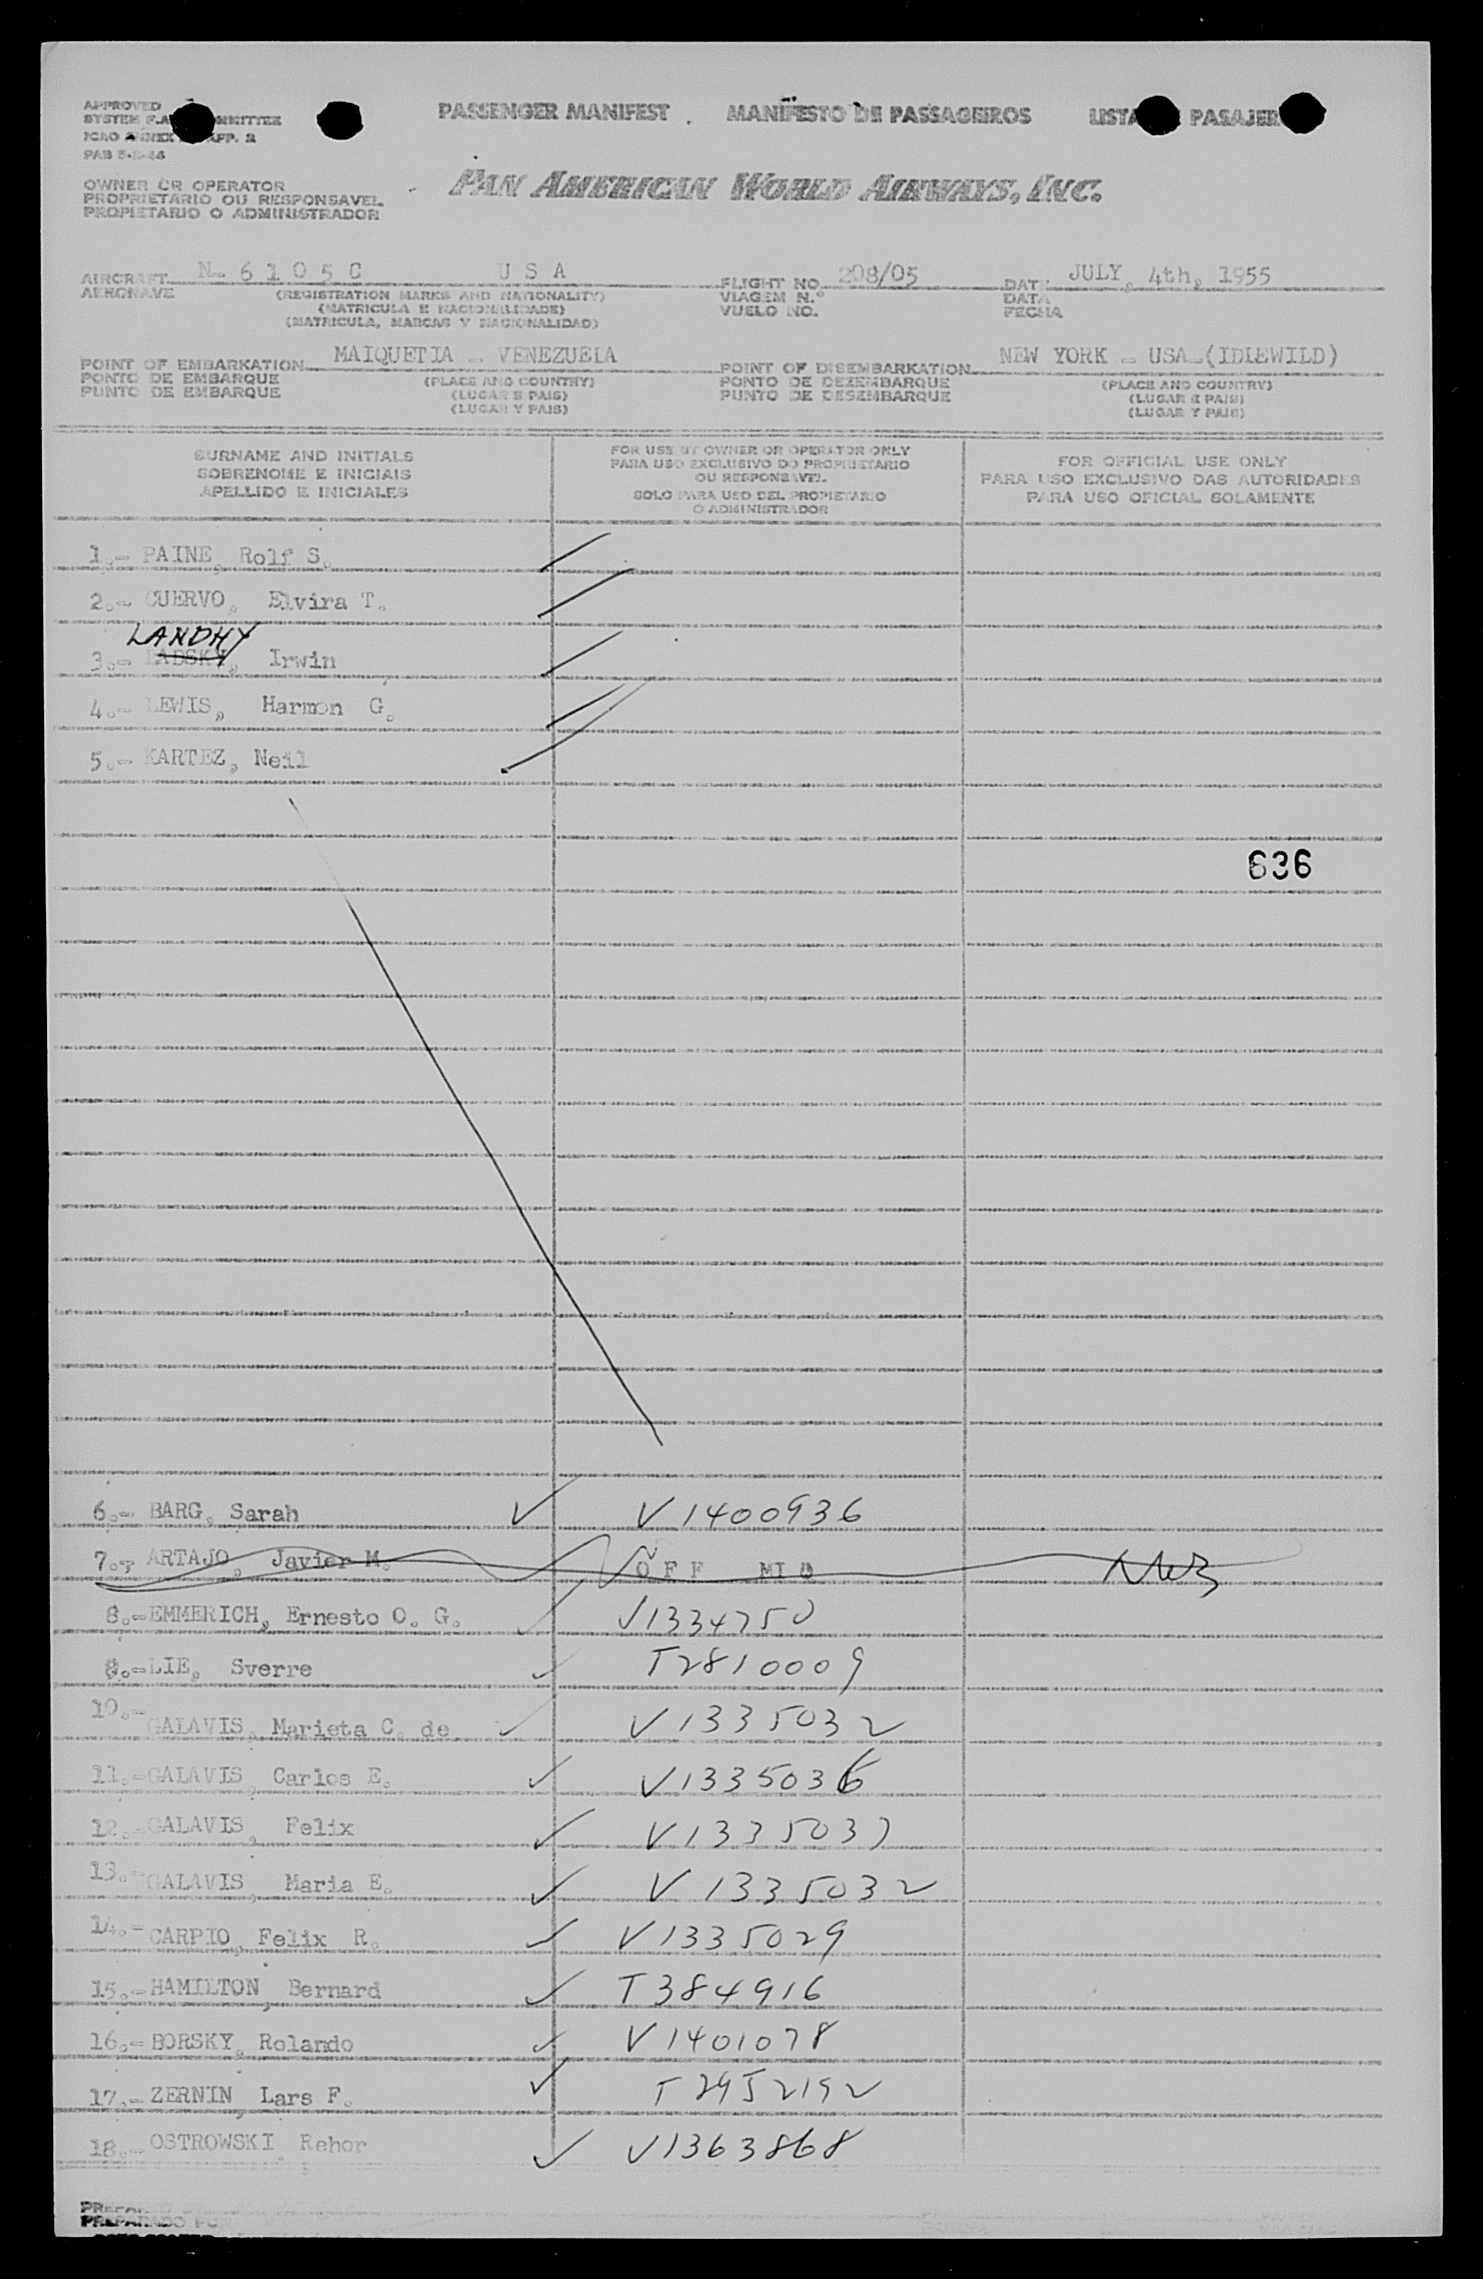 APPROVED
SYSTEM F.A. COMMITTEE
ICAO ANNEX APP. 2
PASSENGER MANIFEST . MANIFESTO DE PASSAGEIROS LISTA PASAJER
OWNER OR OPERATOR
PROPRIETARIO OU RESPONSAVEL
PROPIETARIO O ADMINISTRADOR
PAN AMERICAN WORLD AIRWAYS, INC.
AIRCRAFT N- 6 1 0 5 C U S A FLIGHT NO. 208/05 DATE JULY, 4th, 1955
AERONAVE (REGISTRATION MARKS AND NATIONALITY) VIAGEM N.º DATA
(MATRICULA E NACIONALIDADE) VUELO NO. FECHA
(MATRICULA, MARCAS Y NACIONALIDAD)
POINT OF EMBARKATION MAIQUETIA - VENEZUELA POINT OF DISEMBARKATION NEW YORK - USA-(IDLEWILD)
PONTO DE EMBARQUE (PLACE AND COUNTRY) PONTO DE DEZEMBARQUE (PLACE AND COUNTRY)
PUNTO DE EMBARQUE (LUGAR E PAIS) PUNTO DE DESEMBARQUE (LUGAR E PAIS)
(LUGAR Y PAIS) (LUGAR Y PAIS)
SURNAME AND INITIALS FOR USE BY OWNER OR OPERATOR ONLY FOR OFFICIAL USE ONLY
SOBRENOME E INICIAIS PARA USO EXCLUSIVO DO PROPRIETARIO PARA USO EXCLUSIVO DAS AUTORIDADES
OU RESPONSAVEL
APELLIDO E INICIALES SOLO PARA USO DEL PROPIETARIO PARA USO OFICIAL SOLAMENTE
O ADMINISTRADOR
1.- PAINE, Rolf S.
2.- CUERVO, Elvira T.
LANDHY
3.- LADSKY, Irwin
4.- LEWIS, Harmon G.
5.- KARTEZ, Neil
636
6.- BARG, Sarah V1400936
7.- ARTAJO, Javier M. OFF
8.- EMMERICH, Ernesto O. G. V1334750
8.- LIE, Sverre T2810009
10.- GALAVIS, Marieta C. de V1335032
11.- GALAVIS, Carlos E. V1335036
12.- GALAVIS, Felix V1335037
13.- GALAVIS, Maria E. V1335032
14.- CARPIO, Felix R. V1335029
15.- HAMILTON, Bernard T384916
16.- BORSKY, Rolando V1401078
17.- ZERNIN, Lars F. T2952192
18.- OSTROWSKI, Rehor V1363868
PREPARADO